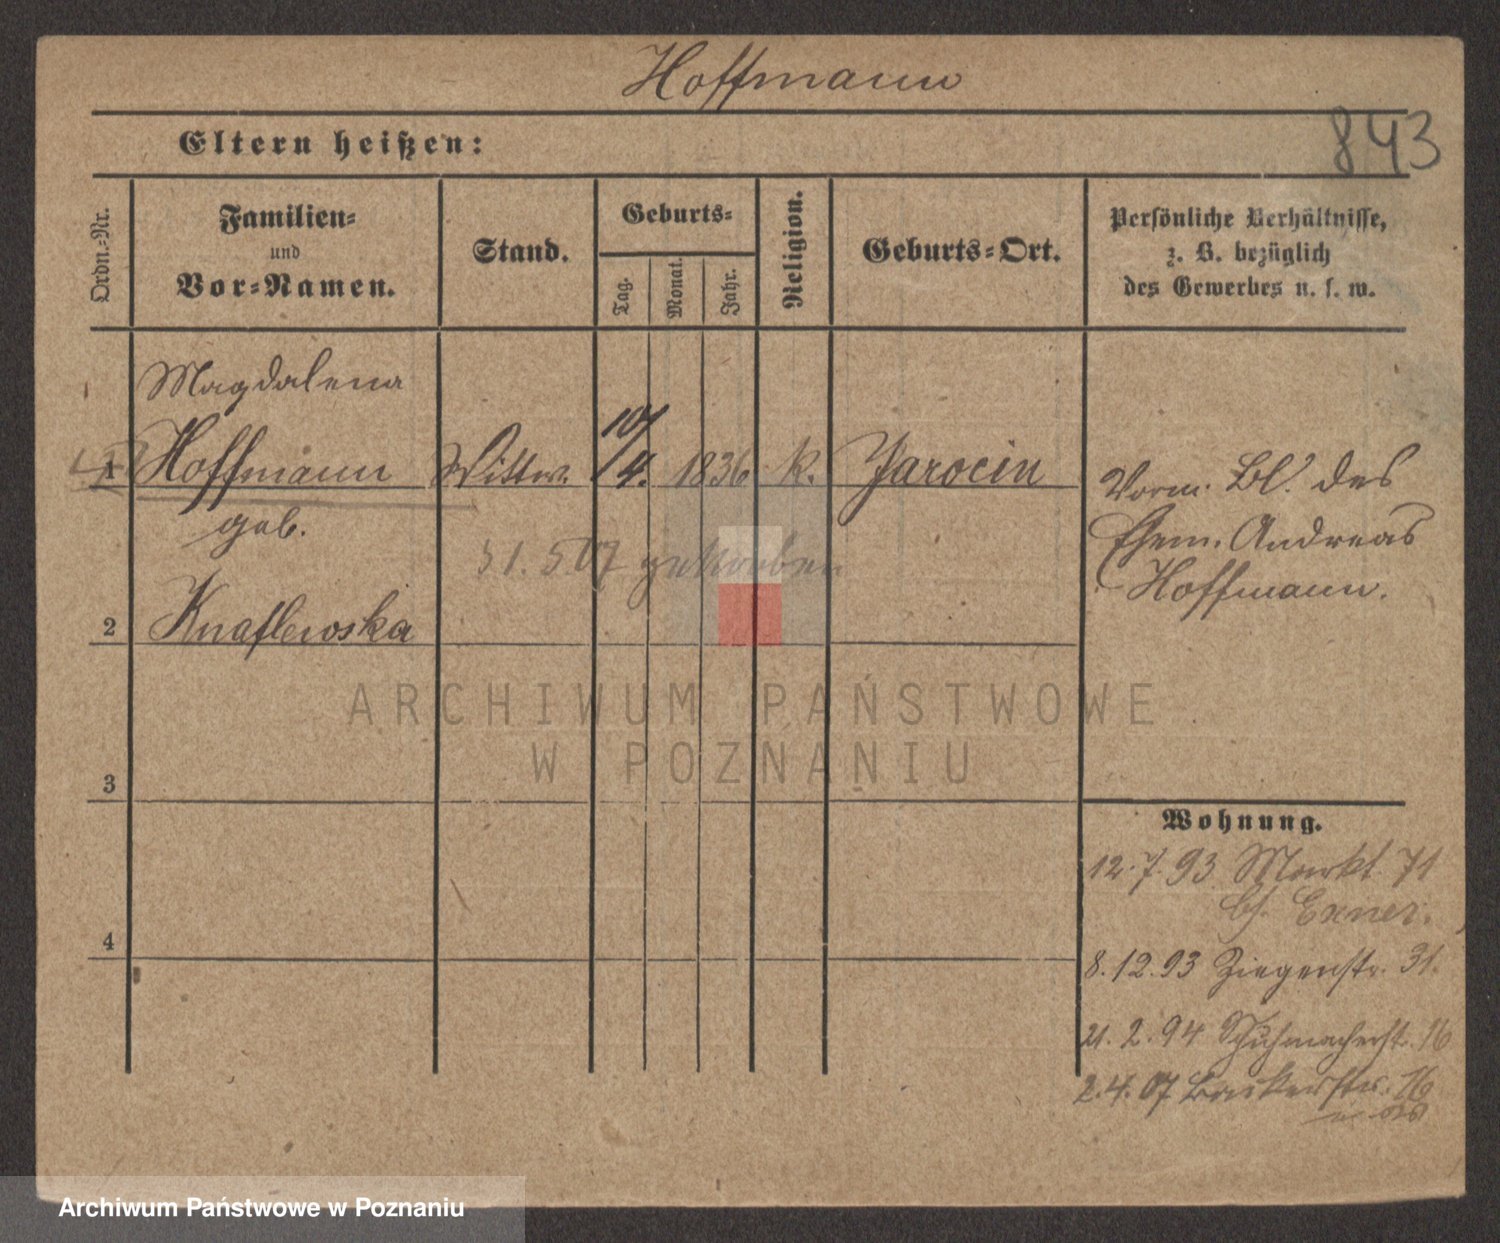 Hoffmann
843
Eltern heißen:
Ordn.-Nr.
Familien-
und
Vor-Namen.
Stand.
Geburts-
Tag.
Monat.
Jahr.
Religion.
Geburts-Ort.
Persönliche Verhältnisse,
z. B. bezüglich
des Gewerbes u. s. w.
Magdalena
1 Hoffmann Wittw. 10/4. 1836 k. Jarocin
geb.
2 Knaflewska
31. 5 07 gestorben
Vorm. Bl. des
Ehem. Andreas
Hoffmann.
3
4
Wohnung.
12.7.93 Markt 71
bei Exner.
8.12.93 Ziegenstr. 31.
21.2.94 Schuhmacherst. 16
2.4.07 16
ARCHIWUM PAŃSTWOWE
W POZNANIU
Archiwum Państwowe w Poznaniu